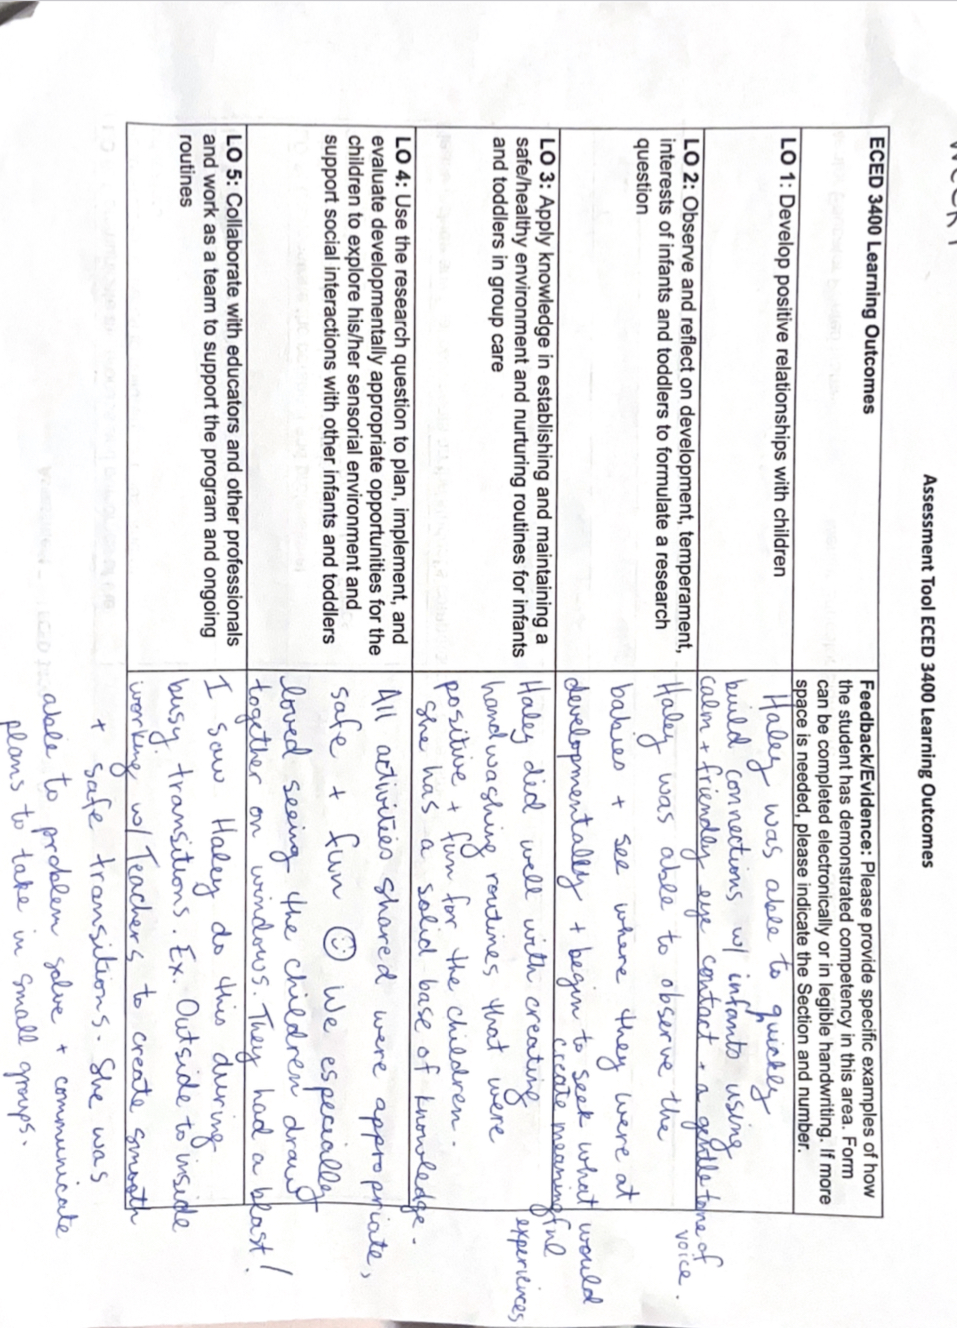 Assessment Tool ECED 3400 Learning Outcomes
ECED 3400 Learning Outcomes
Feedback/Evidence: Please provide specific examples of how
the student has demonstrated competency in this area. Form
can be completed electronically or in legible handwriting. If more
space is needed, please indicate the Section and number.
LO 1: Develop positive relationships with children
Haley was able to quickly
build connections w/ infants using
calm + friendly eye contact + a gentle tone of
voice.
LO 2: Observe and reflect on development, temperament,
interests of infants and toddlers to formulate a research
question
Haley was able to observe the
babies + see where they were at
developmentally + begin to seek what would
create meaningful
experiences
LO 3: Apply knowledge in establishing and maintaining a
safe/healthy environment and nurturing routines for infants
and toddlers in group care
Haley did well with creating
handwashing routines that were
positive + fun for the children.
She has a solid base of knowledge.
LO 4: Use the research question to plan, implement, and
evaluate developmentally appropriate opportunities for the
children to explore his/her sensorial environment and
support social interactions with other infants and toddlers
All activities shared were appropriate,
safe + fun ☺ We especially
loved seeing the children draw
together on windows. They had a blast!
LO 5: Collaborate with educators and other professionals
and work as a team to support the program and ongoing
routines
I saw Haley do this during
busy transitions. Ex. Outside to inside
working w/ Teachers to create smooth
+ safe transitions. She was
able to problem solve + communicate
plans to take in small groups.